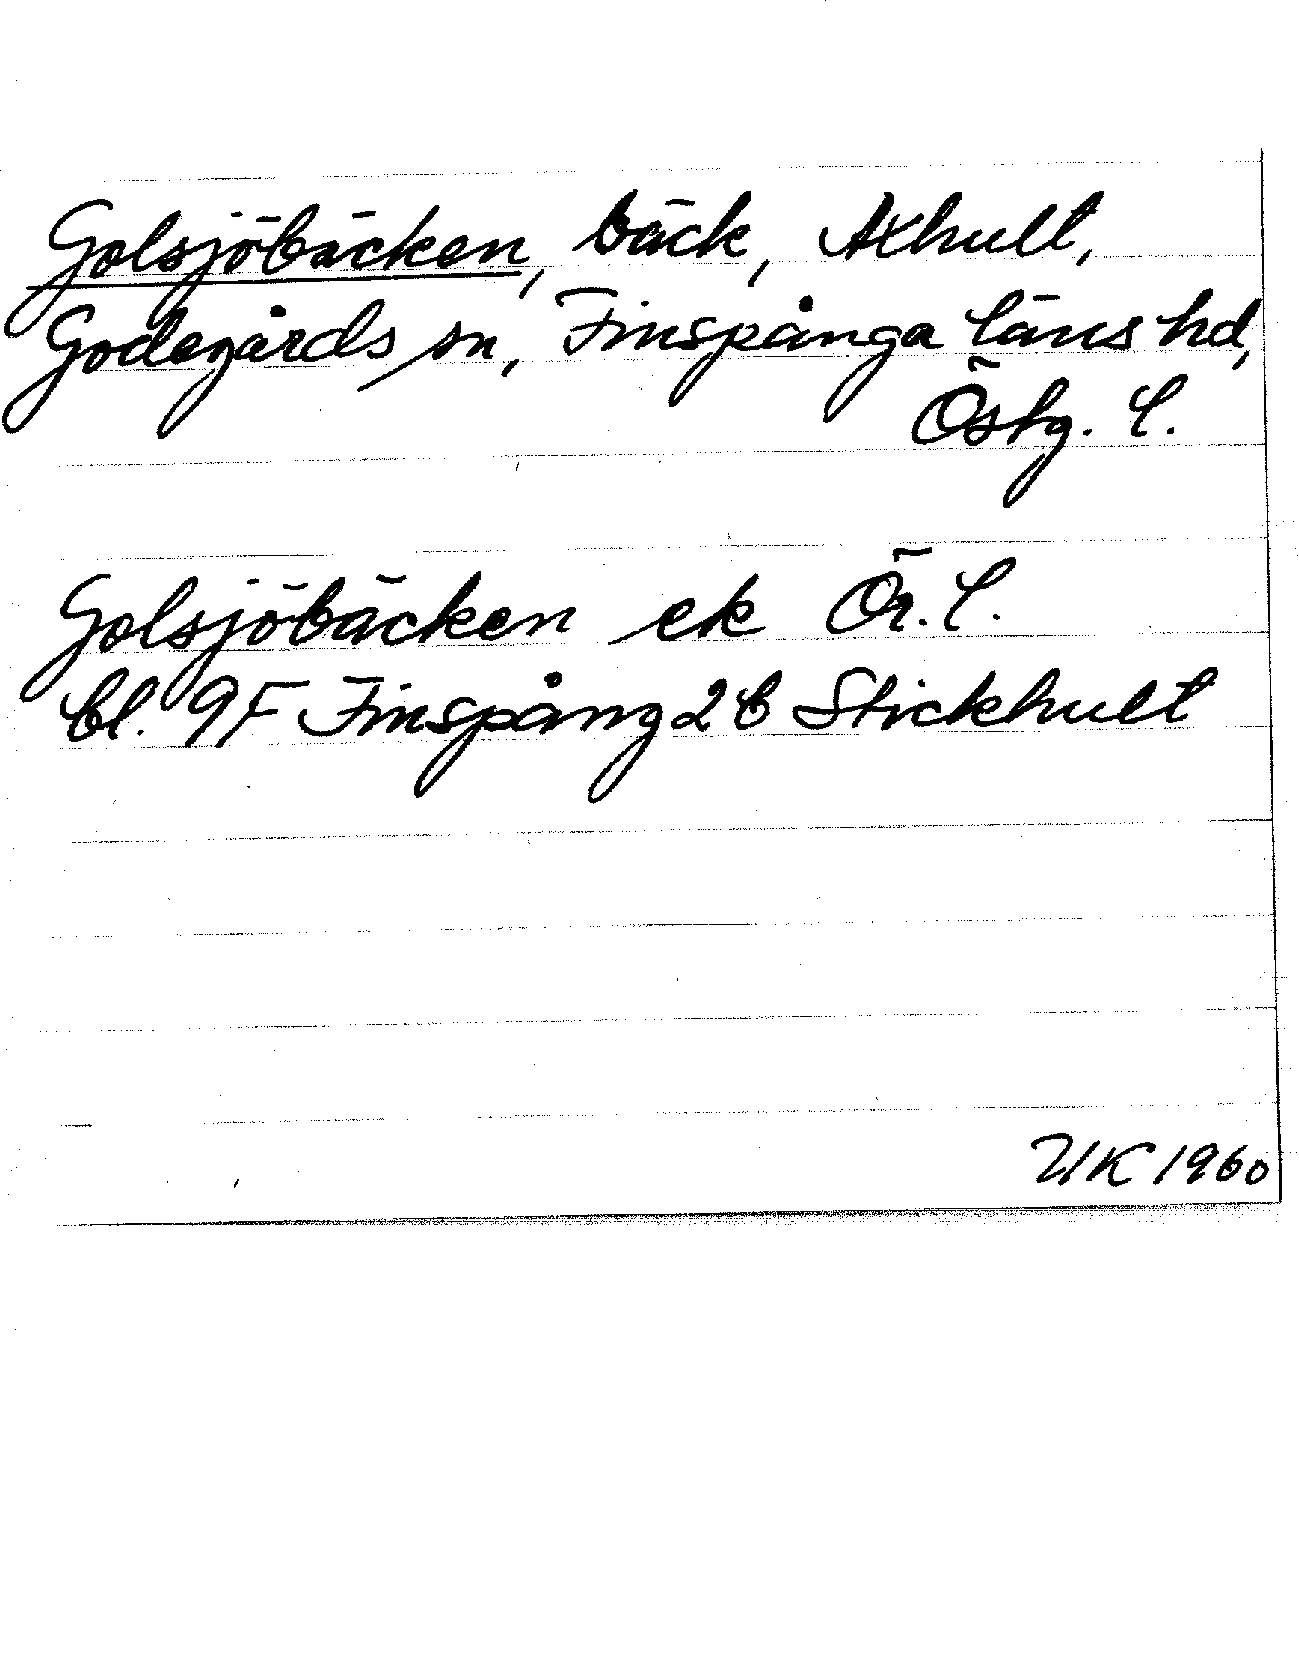 Golsjöbäcken, bäck, Axhult,
Godegårds sn, Finspånga läns hd,
Östg. l.
Golsjöbäcken ek Ör. l.
bl. 9F Finspång 2 b Stickhult
UK 1960